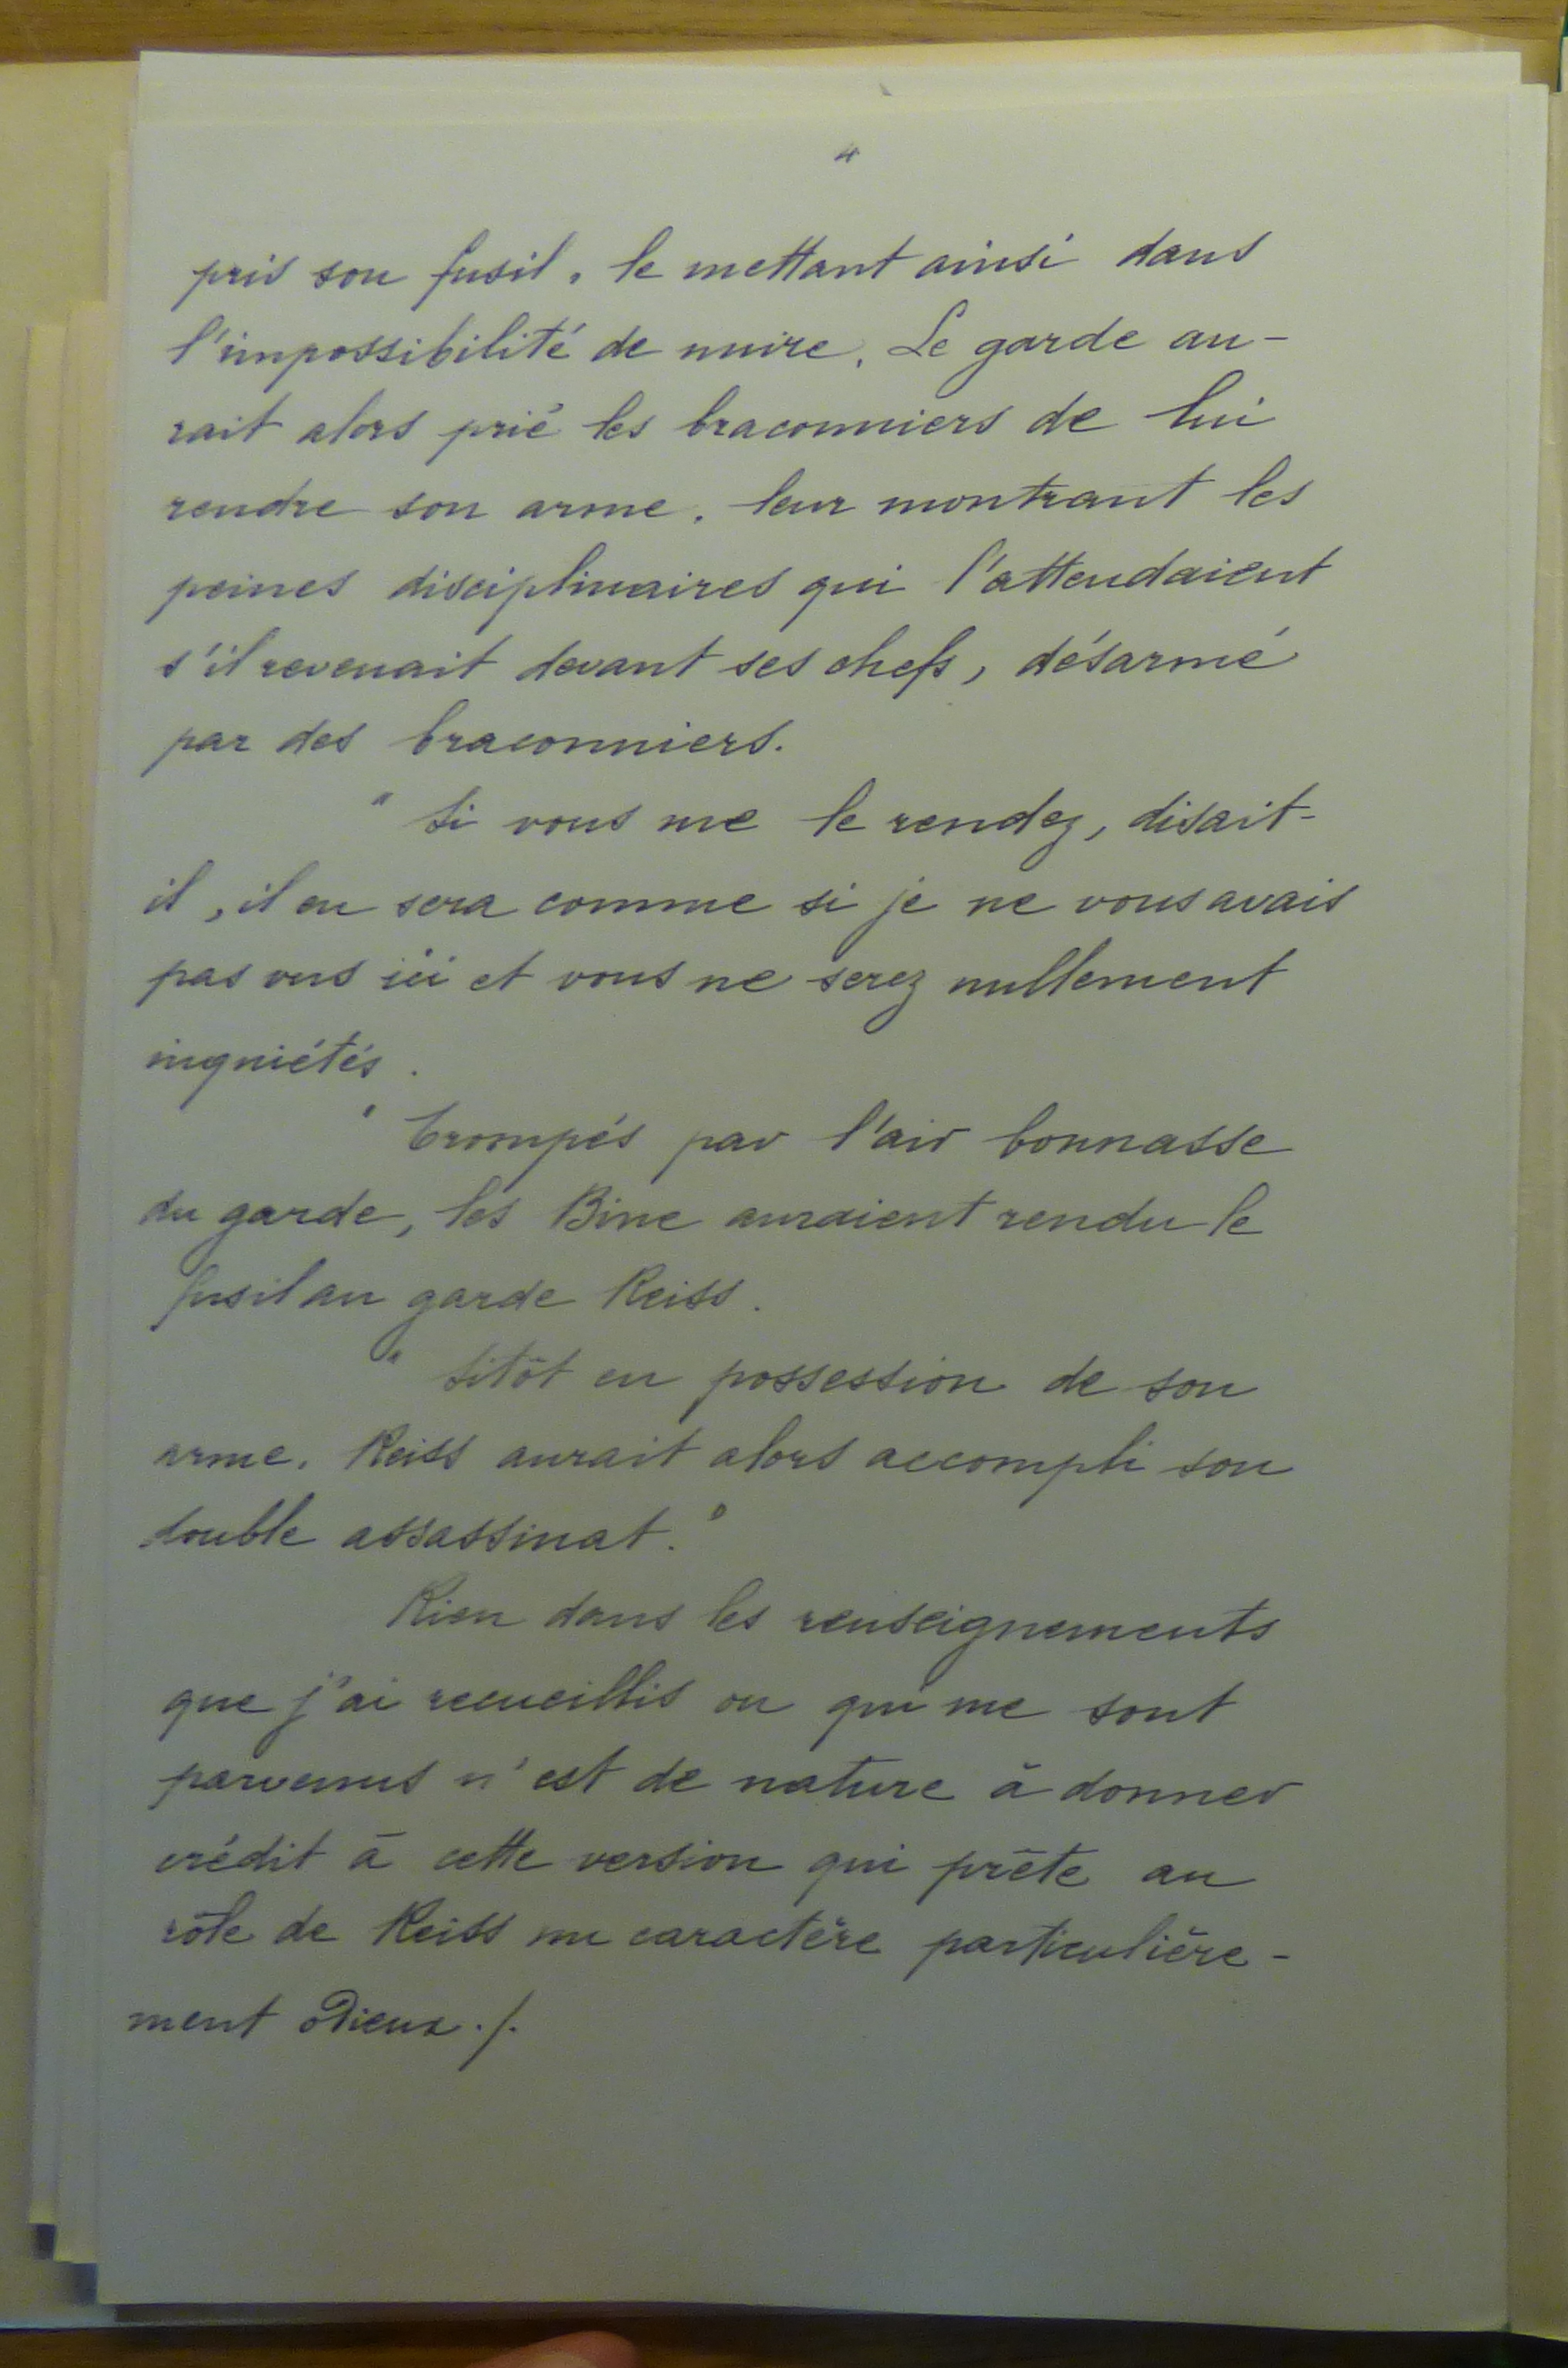 4
pris son fusil, le mettant ainsi dans
l'impossibilité de nuire. Le garde au-
rait alors prié les braconniers de lui
rendre son arme, leur montrant les
peines disciplinaires qui l'attendaient
s'il revenait devant ses chefs, désarmé
par des braconniers.
" Si vous me le rendez, disait-
il, il en sera comme si je ne vous avais
pas vus ici et vous ne serez nullement
inquiétés.
" Trompés par l'air bonnasse
du garde, les Bine auraient rendu le
fusil au garde Reiss.
" Sitôt en possession de son
arme, Reiss aurait alors accompli son
double assassinat."
Rien dans les renseignements
que j'ai recueillis ou qui me sont
parvenus n'est de nature à donner
crédit à cette version qui prête au
rôle de Reiss un caractère particulière-
ment odieux ./.